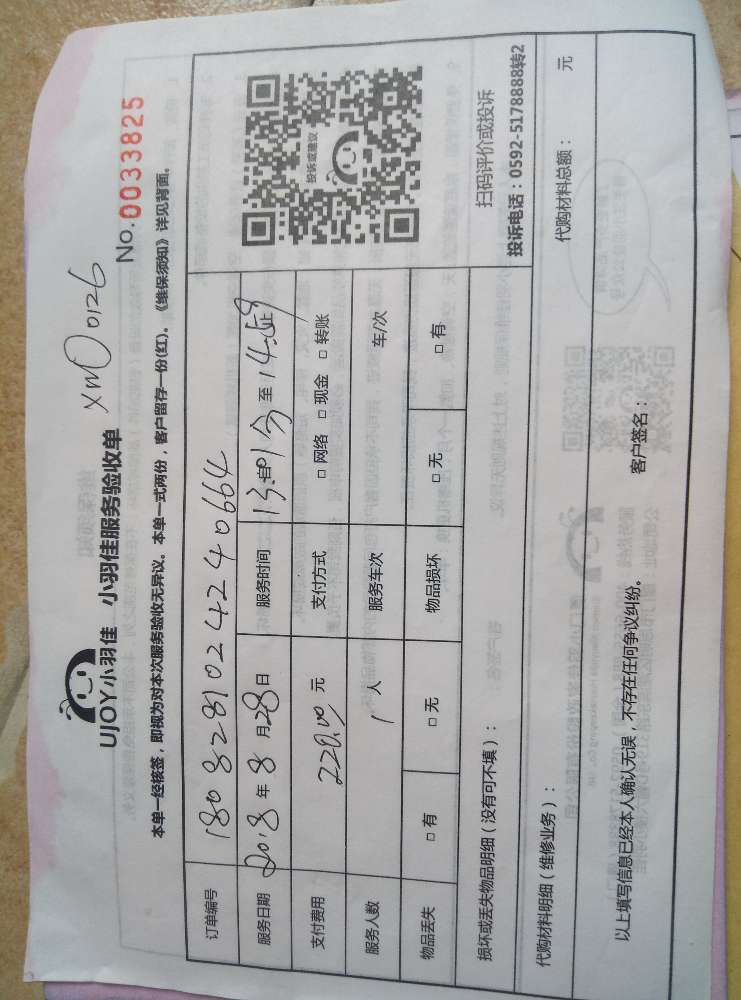 UJOY小羽佳 小羽佳服务验收单
XM00126
No.0033825
本单一经核签，即视为对本次服务验收无异议。本单一式两份，客户留存一份(红)。《维保须知》详见背面。
订单编号 1808281024240664
服务日期 2018年8月28日 服务时间 至
支付费用 220.00元 支付方式 □网络 □现金 □转账
服务人数 1人 服务车次 车/次
物品丢失 □有 □无 物品损坏 □无 □有
投诉或建议
损坏或丢失物品明细（没有可不填）：
扫码评价或投诉
投诉电话：0592-5178888转2
代购材料明细（维修业务）： 代购材料总额： 元
以上填写信息已经本人确认无误，不存在任何争议纠纷。 客户签名：